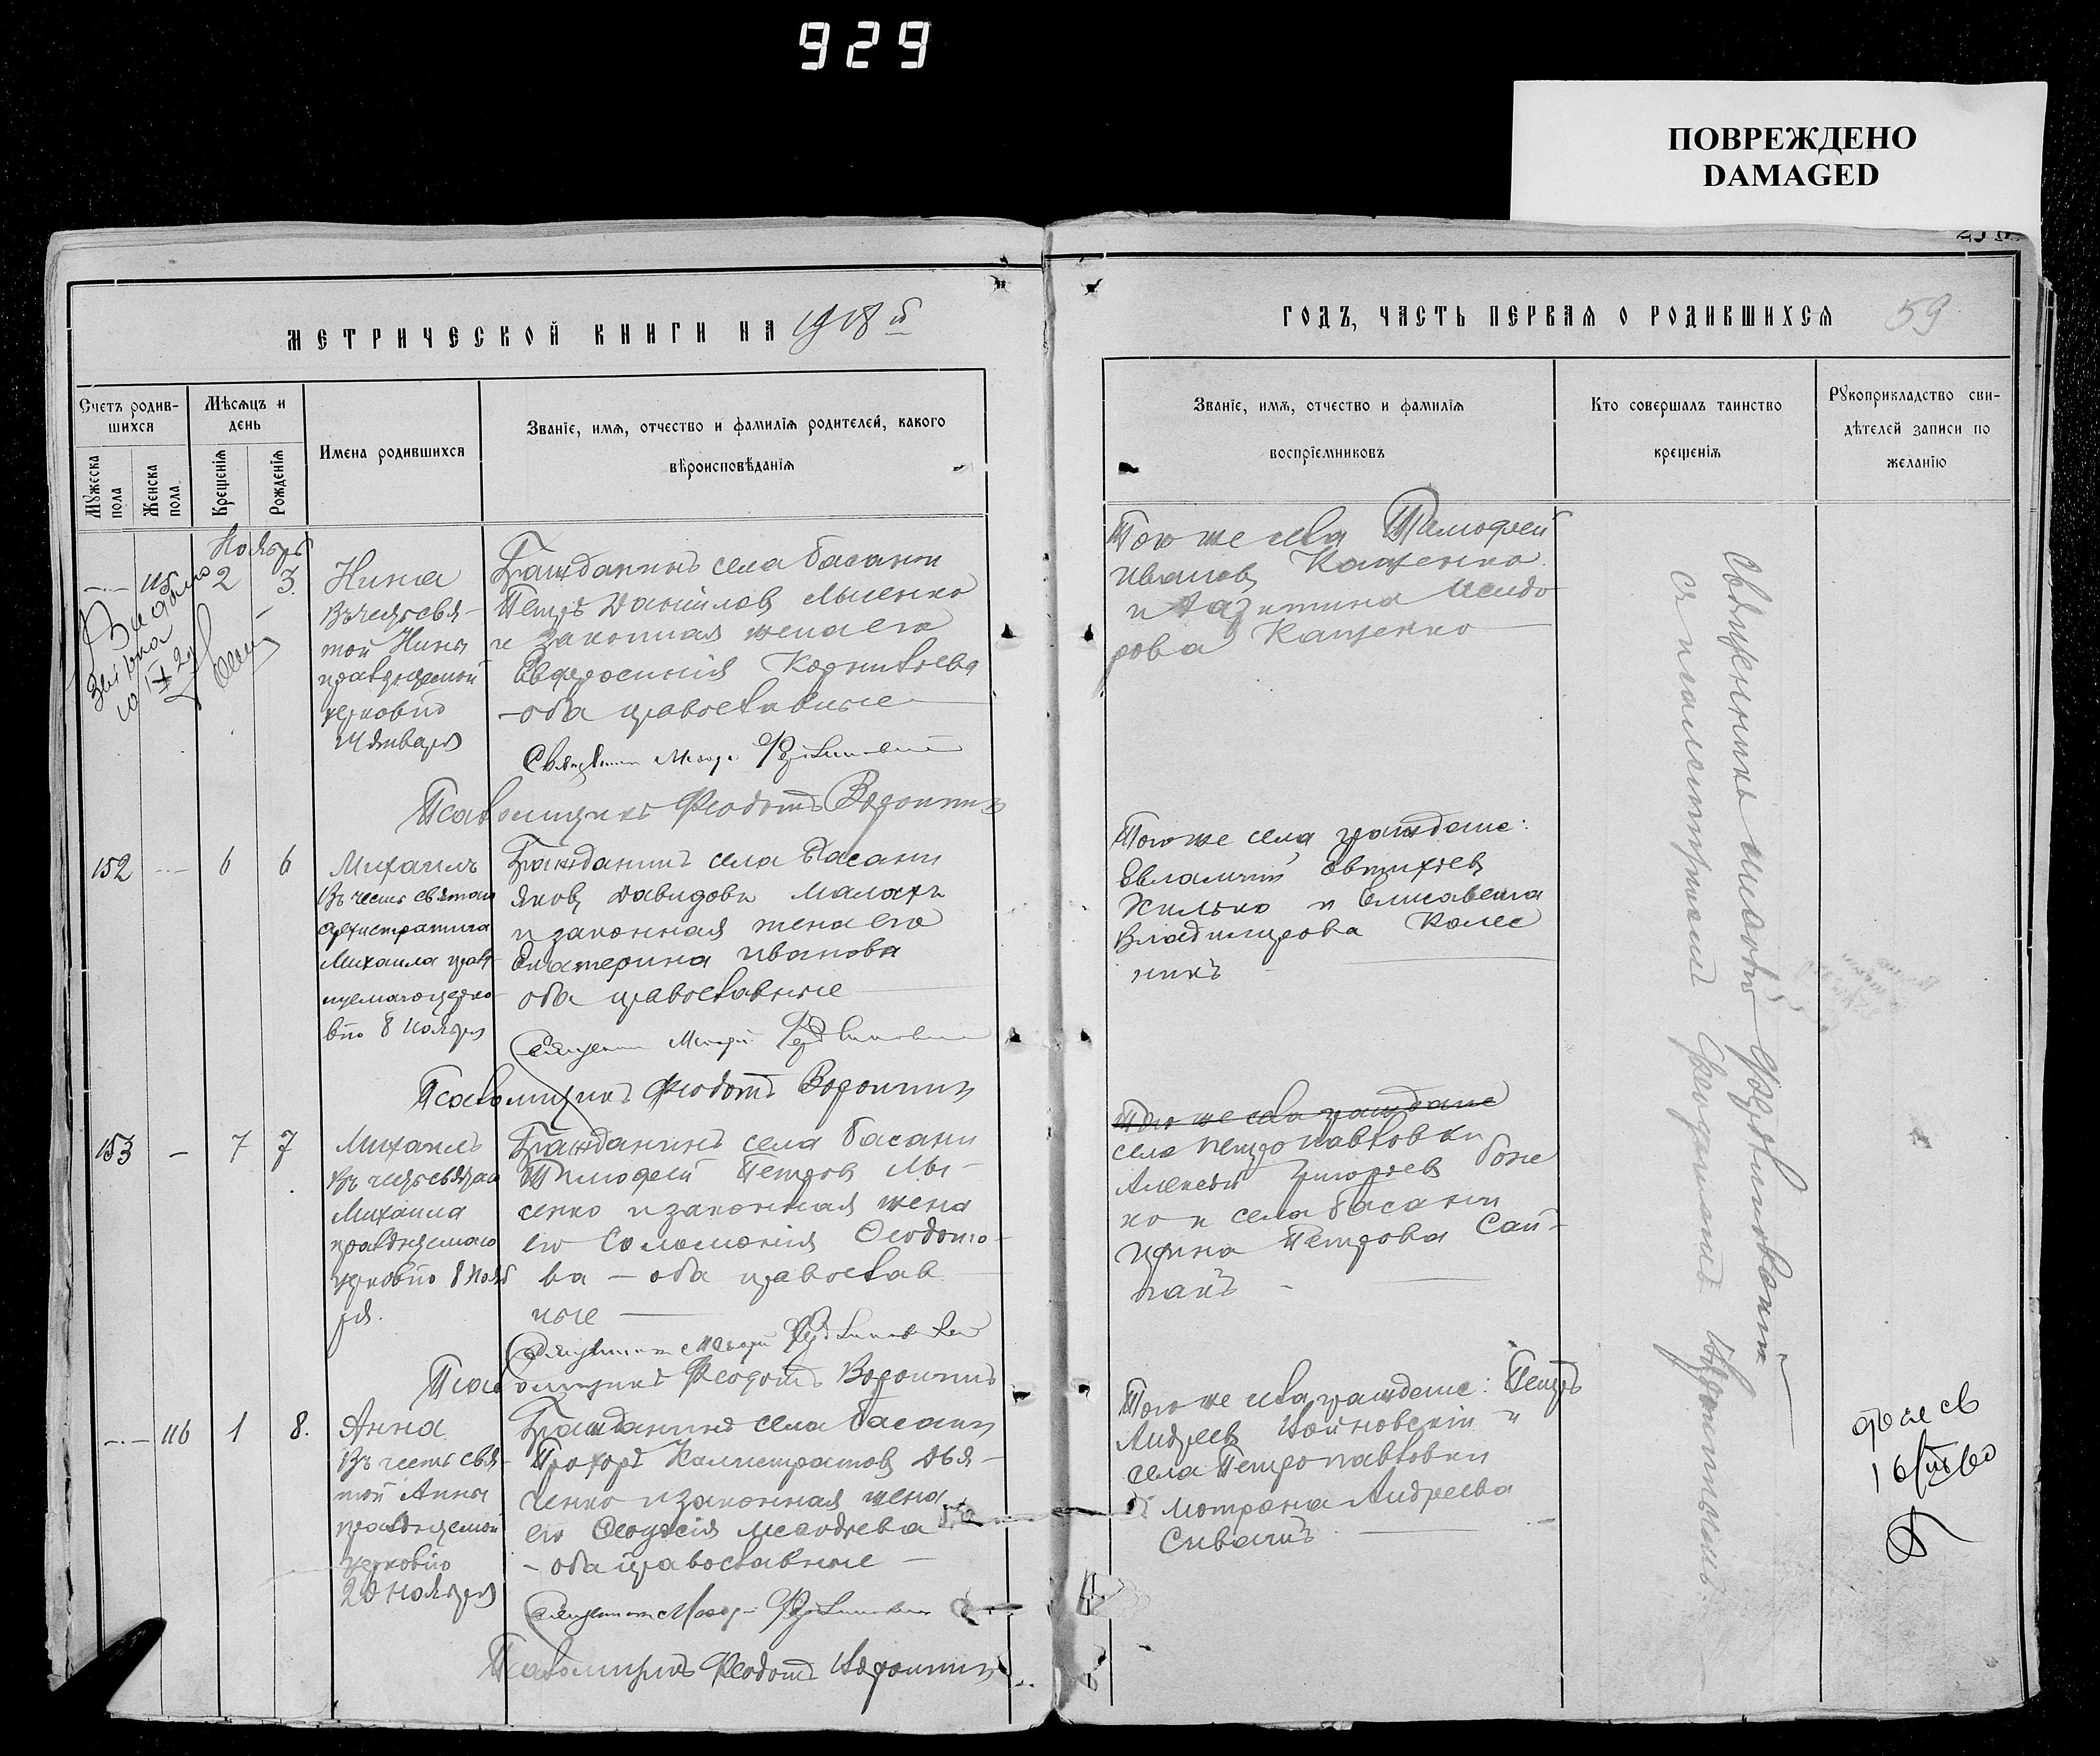 929
ПОВРЕЖДЕНО
DAMAGED
МЕТРИЧЕСКОЙ КНИГИ НА 1918 й
ГОДЪ, ЧАСТЬ ПЕРВАЯ О РОДИВШИХСЯ
59
Счетъ родив-
шихся
Мѣсяцъ и
день
Мужеска
пола
Женска
пола.
Крещенія
Рожденія
Имена родившихся
Званіе, имя, отчество и фамилія родителей, какого
вѣроисповѣданія
Званіе, имя, отчество и фамилія
воспріемниковъ
Кто совершалъ таинство
крещенія
Рукоприкладство сви-
дѣтелей записи по
желанію
Ноябрь
115 2 3.
Нина
Въ честь свя-
той Нины
празднуемой
церковію
14 января
Гражданинъ села Басани
Петръ Даніиловъ Лысенко
и законная жена его
Евфросинія Корнилієва
- оба православные
Псаломщикъ Феодотъ Воронинъ
Того же села Тимофей
Ивановъ Кащенко
и Исидо
рова Кащенко
152 - 6 6
Михаилъ
Въ честь святаго
архистратига
Михаила праз-
нуемаго церко-
вію 8 ноября
Гражданинъ села Басани
Яковъ Давидовъ Малахъ
и законная жена его
Екатерина Иванова
оба православные
Псаломщикъ Феодотъ Воронинъ
Того же села граждане:
Евлампій Евтихіевъ
Хилько и Елисавета
Владимирова Колес
никъ
153 - 7 7
Михаилъ
Въ честь святаго
Михаила
празднуемаго
церковію 8 нояб
ря.
Гражданинъ села Басани
Тимофей Петровъ Лы-
сенко и законная жена
его Соломонія Феодото-
ва - оба православ
ные
Псаломщикъ Феодотъ Воронинъ
Того же села граждане
села Петропавловки
Алексѣй Григорьевъ
ко и села Басани
Ирина Петрова Сай-
пакъ
116 1 8.
Анна
Въ честь свя-
той Анны
празднуемой
церковію
20 ноября
Гражданинъ села Басани
Прохоръ Каллистратовъ Дья-
ченко и законная жена
его Феодосія
- оба православные
Псаломщикъ Феодотъ Воронинъ
Того же села граждане: Петръ
Андреевъ Войновскій и
села Петропавловки
Мотрона Андреева
Сивачъ
Священникъ
съ псаломщикомъ Феодотомъ Воронинымъ.